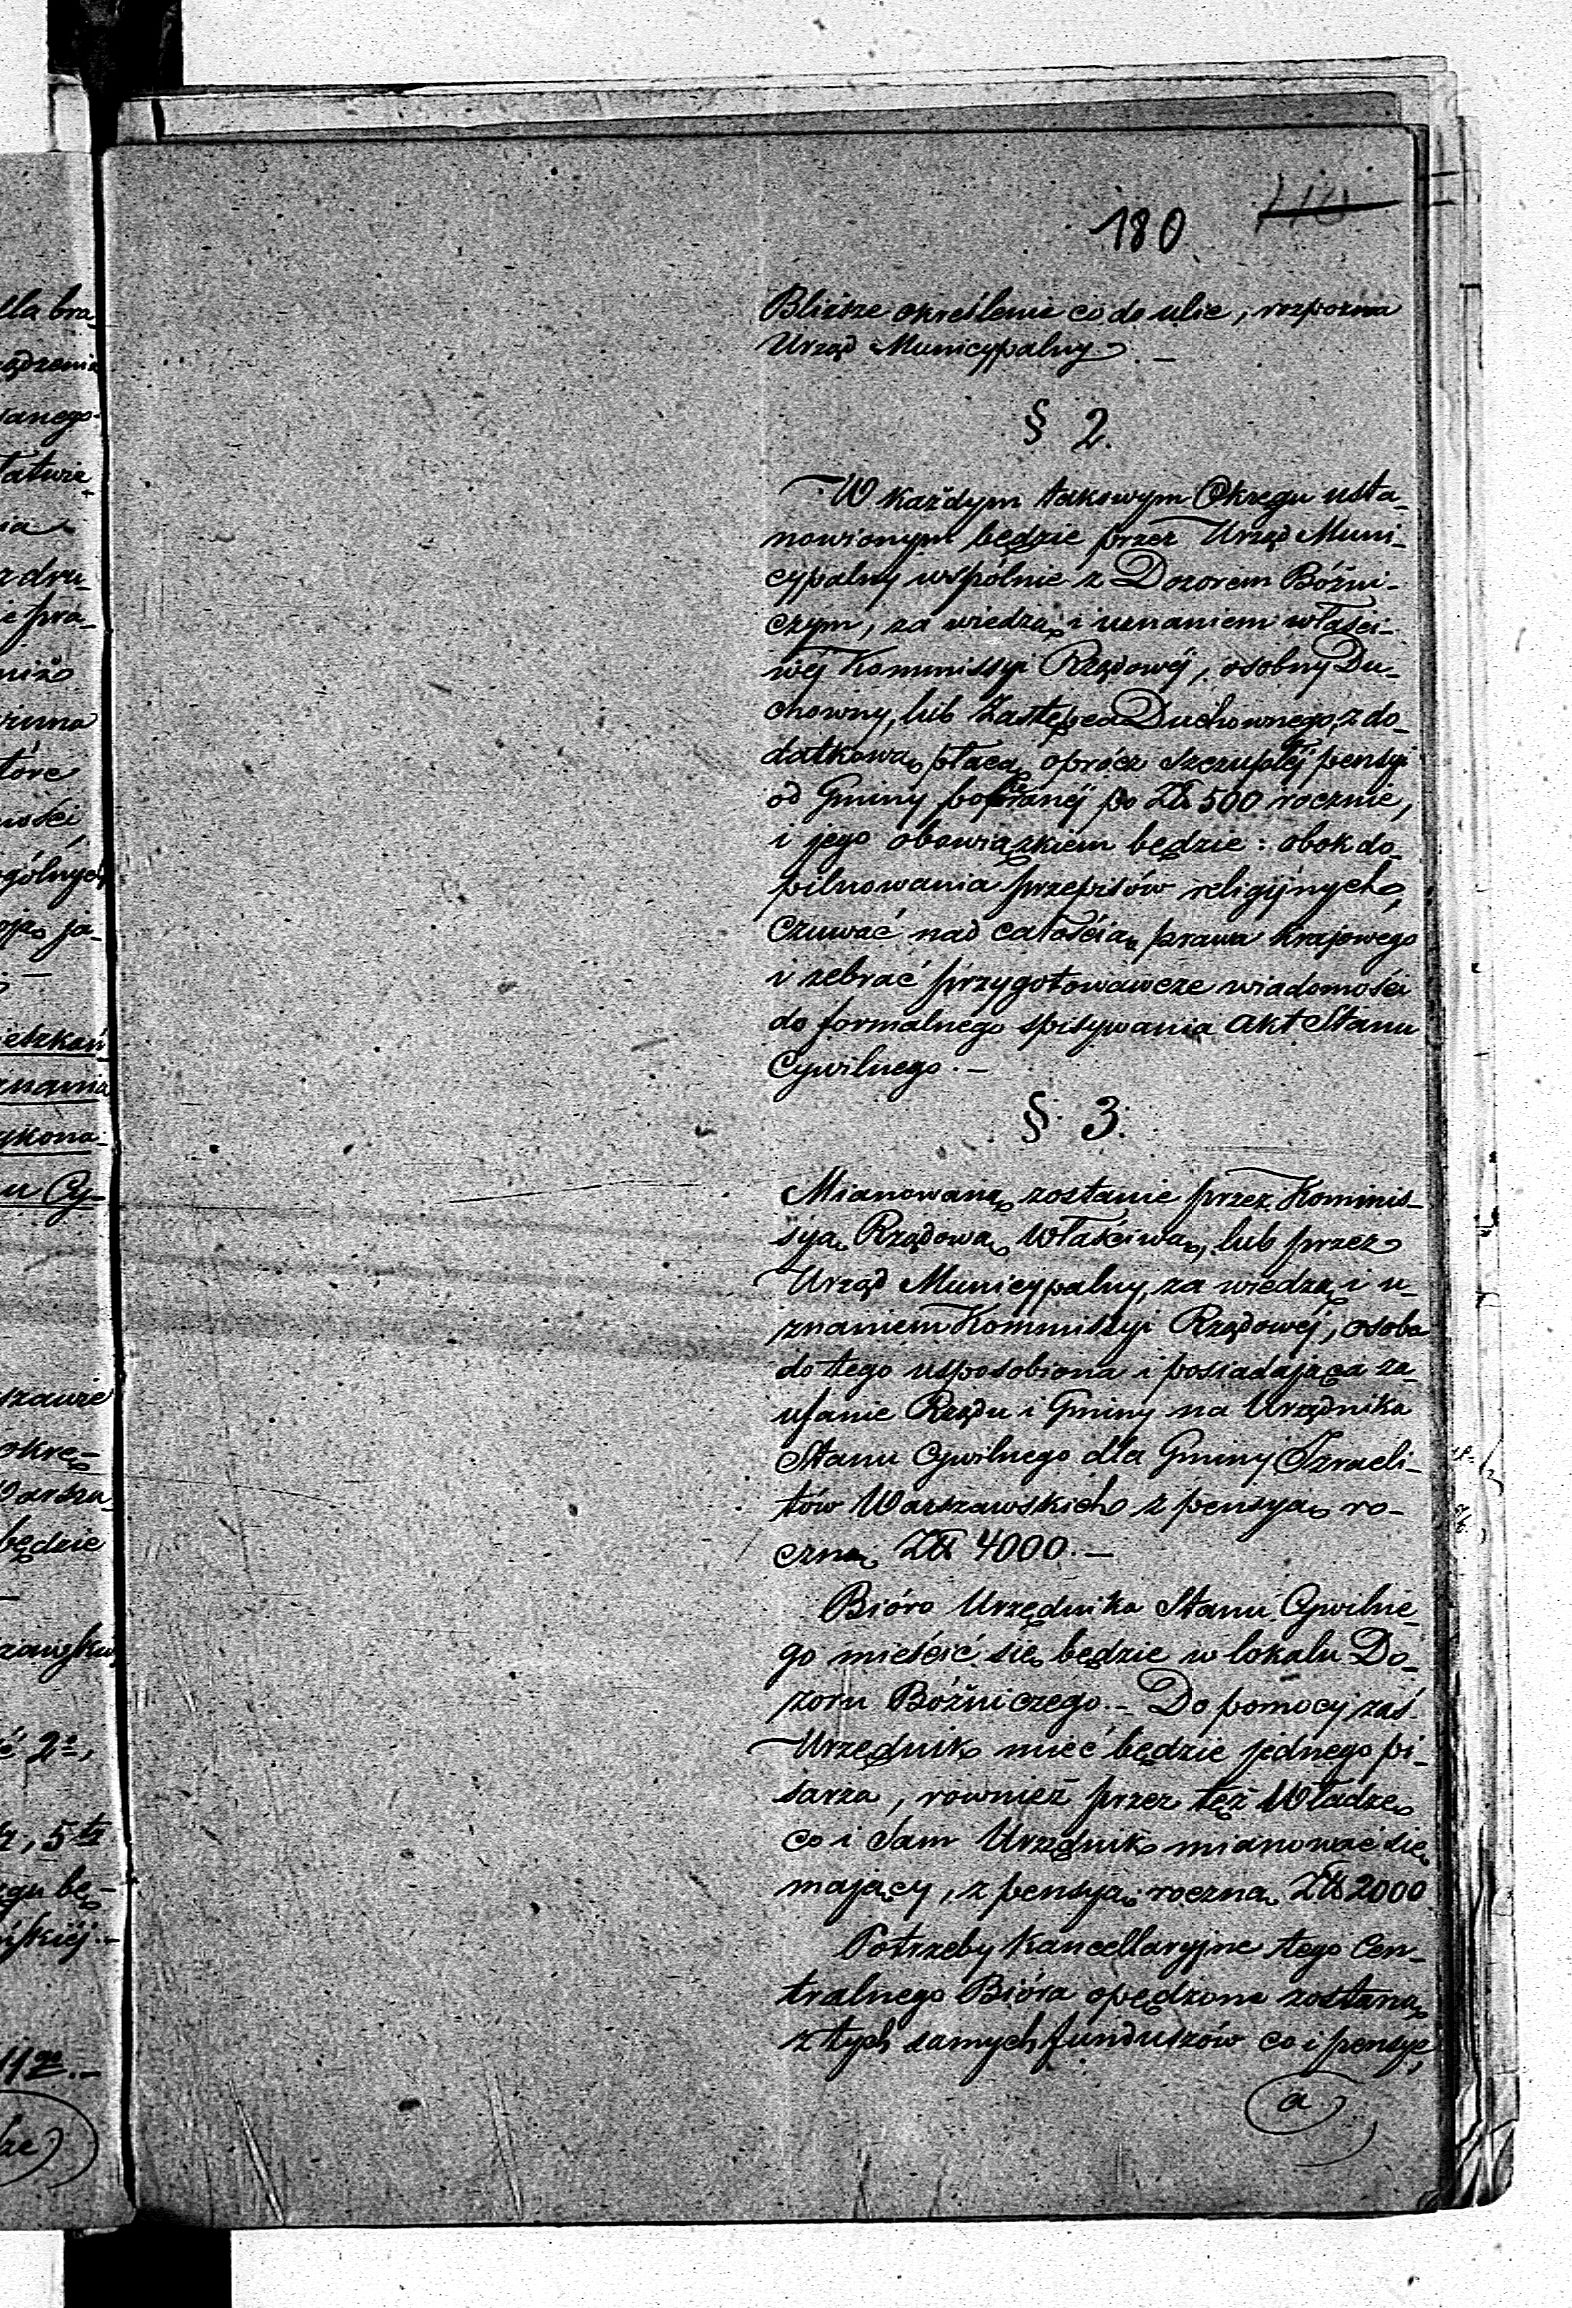 180
Bliższe określenie co do ulic, rozpozna
Urząd Municypalny. —
§ 2.
W każdym takowym Okręgu usta-
nowionym będzie przez Urząd Muni-
cypalny wspólnie z Dozorem Bóżni-
czym, za wiedzą i uznaniem właści-
wéj Kommissyi Rządowéj, osobny Du-
chowny, lub Zastępca Duchownego, z do-
datkową płacą oprócz szczupłéj pensyi
od Gminy pobranéj po Złt 500 rocznie,
i jego obowiązkiem będzie: obok do-
pilnowania przepisów religijnych,
czuwać nad całością prawa krajowego
i zebrać przygotowawcze wiadomości
do formalnego spisywania Akt Stanu
Cywilnego. —
§. 3.
Mianowaną zostanie przez Kommis-
syą Rządową Właściwą, lub przez
Urząd Municypalny, za wiedzą i u-
znaniem Kommissyi Rządowéj, osoba
do tego usposobiona i posiadająca za-
ufanie Rządu i Gminy na Urzędnika
Stanu Cywilnego dla Gminy Izraeli-
tów Warszawskich z pensyą ro-
czną Złt 4000. —
Bióro Urzędnika Stanu Cywilne-
go mieścić się będzie w lokalu Do-
zoru Bóżniczego. — Do pomocy zaś
Urzędnik mieć będzie jednego pi-
sarza, rownież przez też Władze
co i sam Urzędnik mianować się
mający, z pensyą roczną Złt 2000
Potrzeby kancellaryjne tego Cen-
tralnego Bióra opędzone zostaną
z tych samych funduszów co i pensye,
a